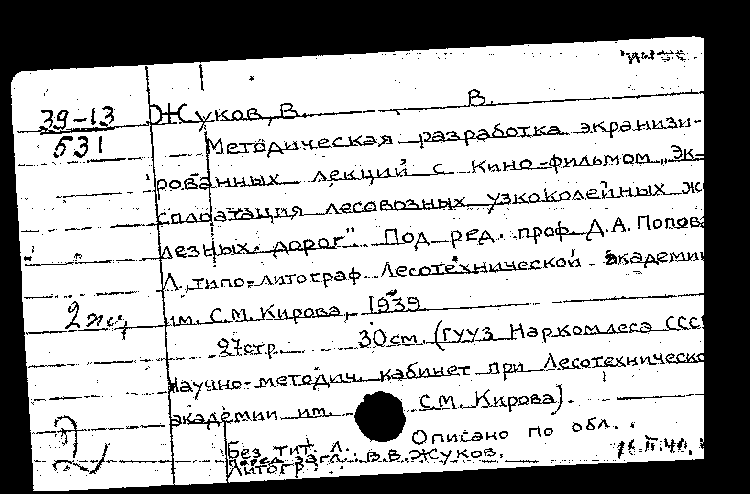 39-13
531
Жуков, В. В.
Методическая разработка экранизи-
рованных лекций с кино-фильмом „Эк-
сплоатация лесовозных узкоколейных же
лезных дорог". Под ред. проф. Д.А. Попова
Л., типо-литограф. Лесотехнической академии
им. С.М. Кирова, 1939
27стр. 30см. (ГУУЗ Наркомлеса СССР
Научно-методич. кабинет при Лесотехническо
академии им. С.М. Кирова).
2
Без тит. л. Описано по обл.
Перед загл.: В.В. Жуков.
Литогр.
16.II.40.